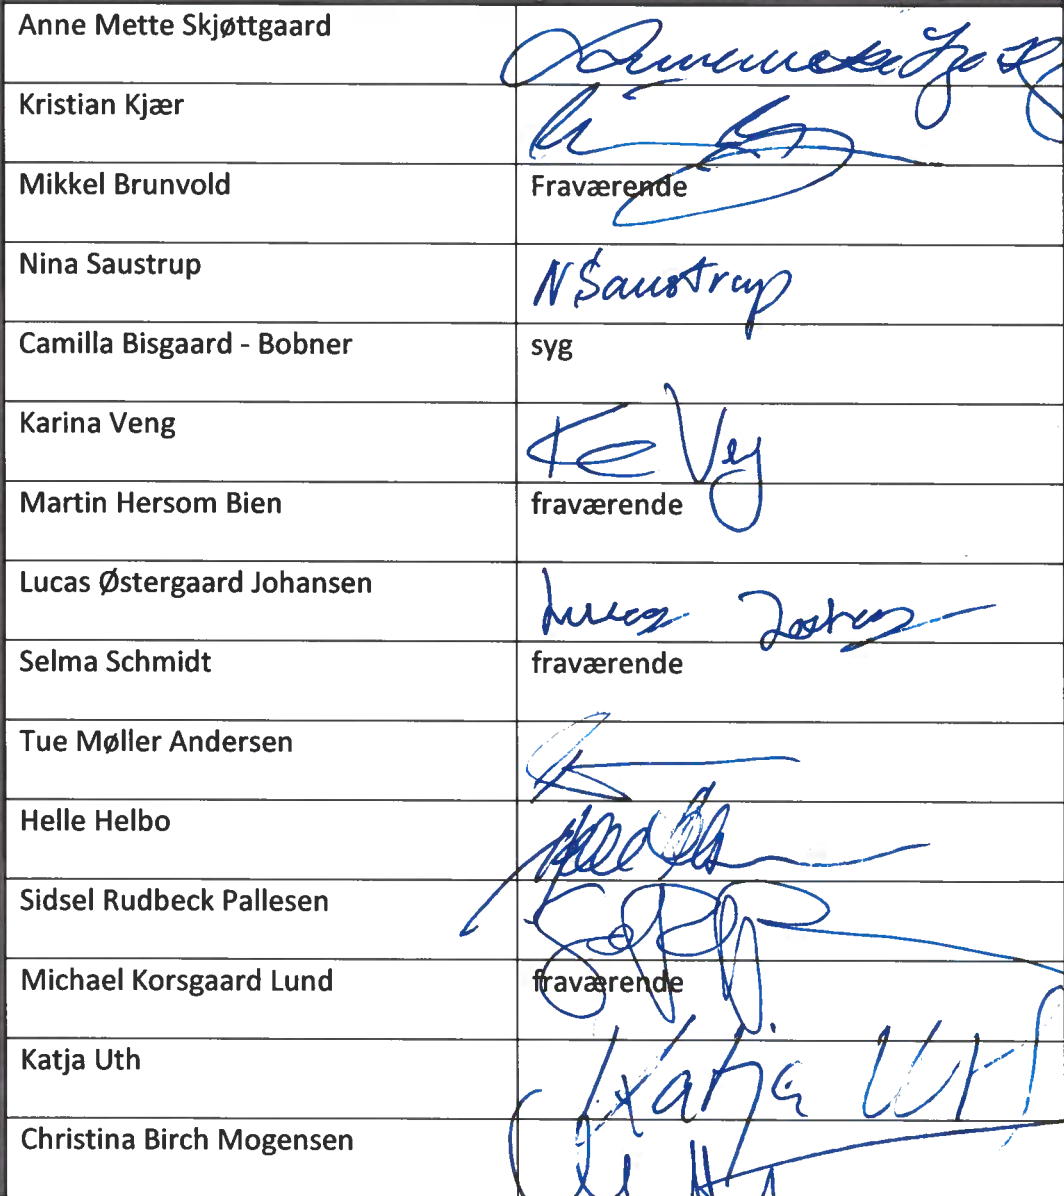 Anne Mette Skjøttgaard
Kristian Kjær
Mikkel Brunvold Fraværende
Nina Saustrup NSaustrup
Camilla Bisgaard - Bobner syg
Karina Veng
Martin Hersom Bien fraværende
Lucas Østergaard Johansen Lucas
Selma Schmidt fraværende
Tue Møller Andersen
Helle Helbo
Sidsel Rudbeck Pallesen
Michael Korsgaard Lund fraværende
Katja Uth Katja Uth
Christina Birch Mogensen